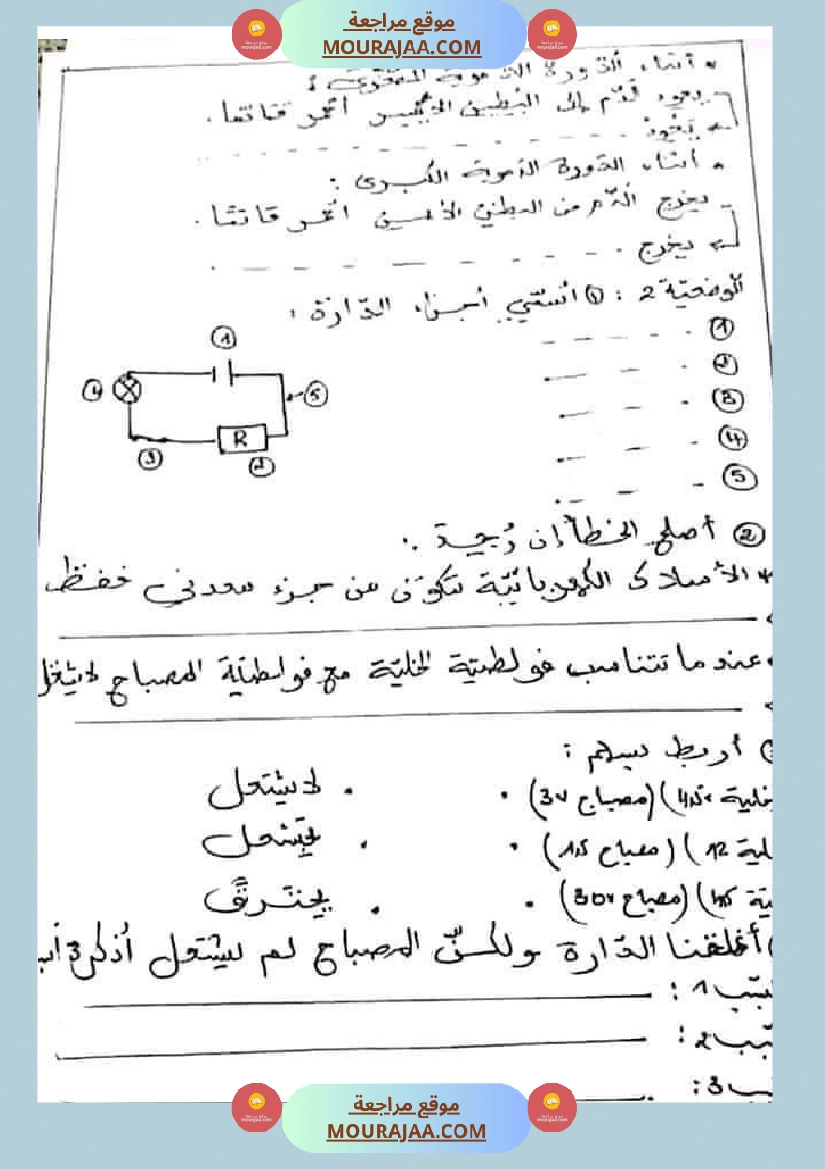 موقع مراجعة
MOURAJAA.COM
• أثناء الدورة الدموية الصغرى :
- يعود الدّم إلى البطين الأيسر أحمر قاتما.
← يعود
• أثناء الدورة الدموية الكبرى :
- يخرج الدّم من البطين الأيسر أحمر قاتما.
← يخرج
الوضعيّة 2 : ① أسمّي أجزاء الدّارة :
①
②
③
④
⑤
①
④
⑤
R
③
②
② أصلح الخطأ إن وُجد :
* الأسلاك الكهربائيّة تتكوّن من جزء معدني فقط
عندما تتناسب فولطيّة الخليّة مع فولطيّة المصباح لا يشتعل
أربط بسهم :
(مصباح 3v) • • لا يشتعل
(مصباح 1,5) • • يشتعل
(مصباح 30v) • • يحترق
أغلقنا الدّارة ولكنّ المصباح لم يشتعل أذكر 3
1 :
2 :
3 :
موقع مراجعة
MOURAJAA.COM